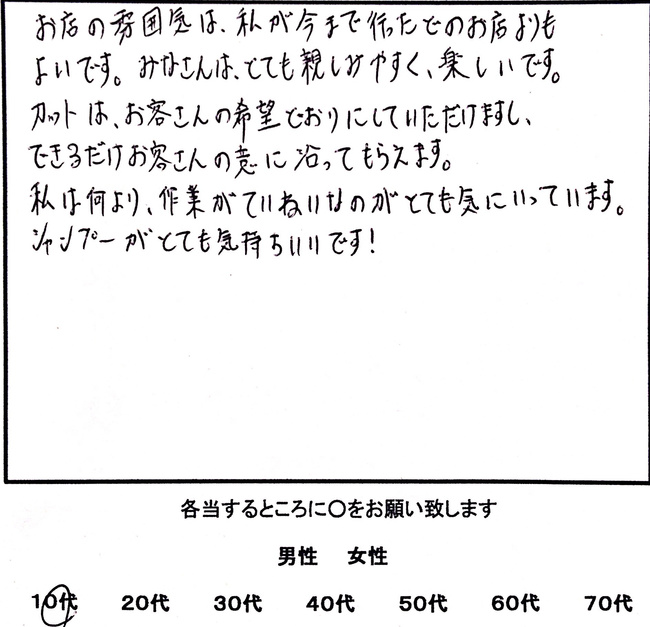 お店の雰囲気は、私が今まで行ったどのお店よりも
よいです。みなさんは、とても親しみやすく、楽しいです。
カットは、お客さんの希望どおりにしていただけますし、
できるだけお客さんの意に沿ってもらえます。
私は何より、作業がていねいなのがとても気にいっています。
シャンプーがとても気持ちいいです!
各当するところに〇をお願い致します
男性 女性
10代 20代 30代 40代 50代 60代 70代